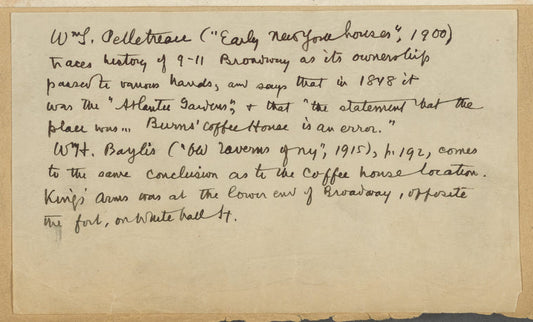 Wm S. Pelletreau ("Early New York houses", 1900)
traces history of 9-11 Broadway as its ownership
passed to various hands, and says that in 1848 it
was the "Atlantic Gardens", & that "the statement that the
place was... Burns' Coffee House is an error."
Wm H. Baylis ("Old Taverns of N.Y", 1915), p. 192, comes
to the same conclusion as to the Coffee house location.
King's Arms was at the lower end of Broadway, opposite
the fort, on Whitehall St.